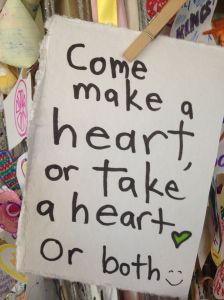 KINGS
Come
make a
heart,
or take
a heart
Or both